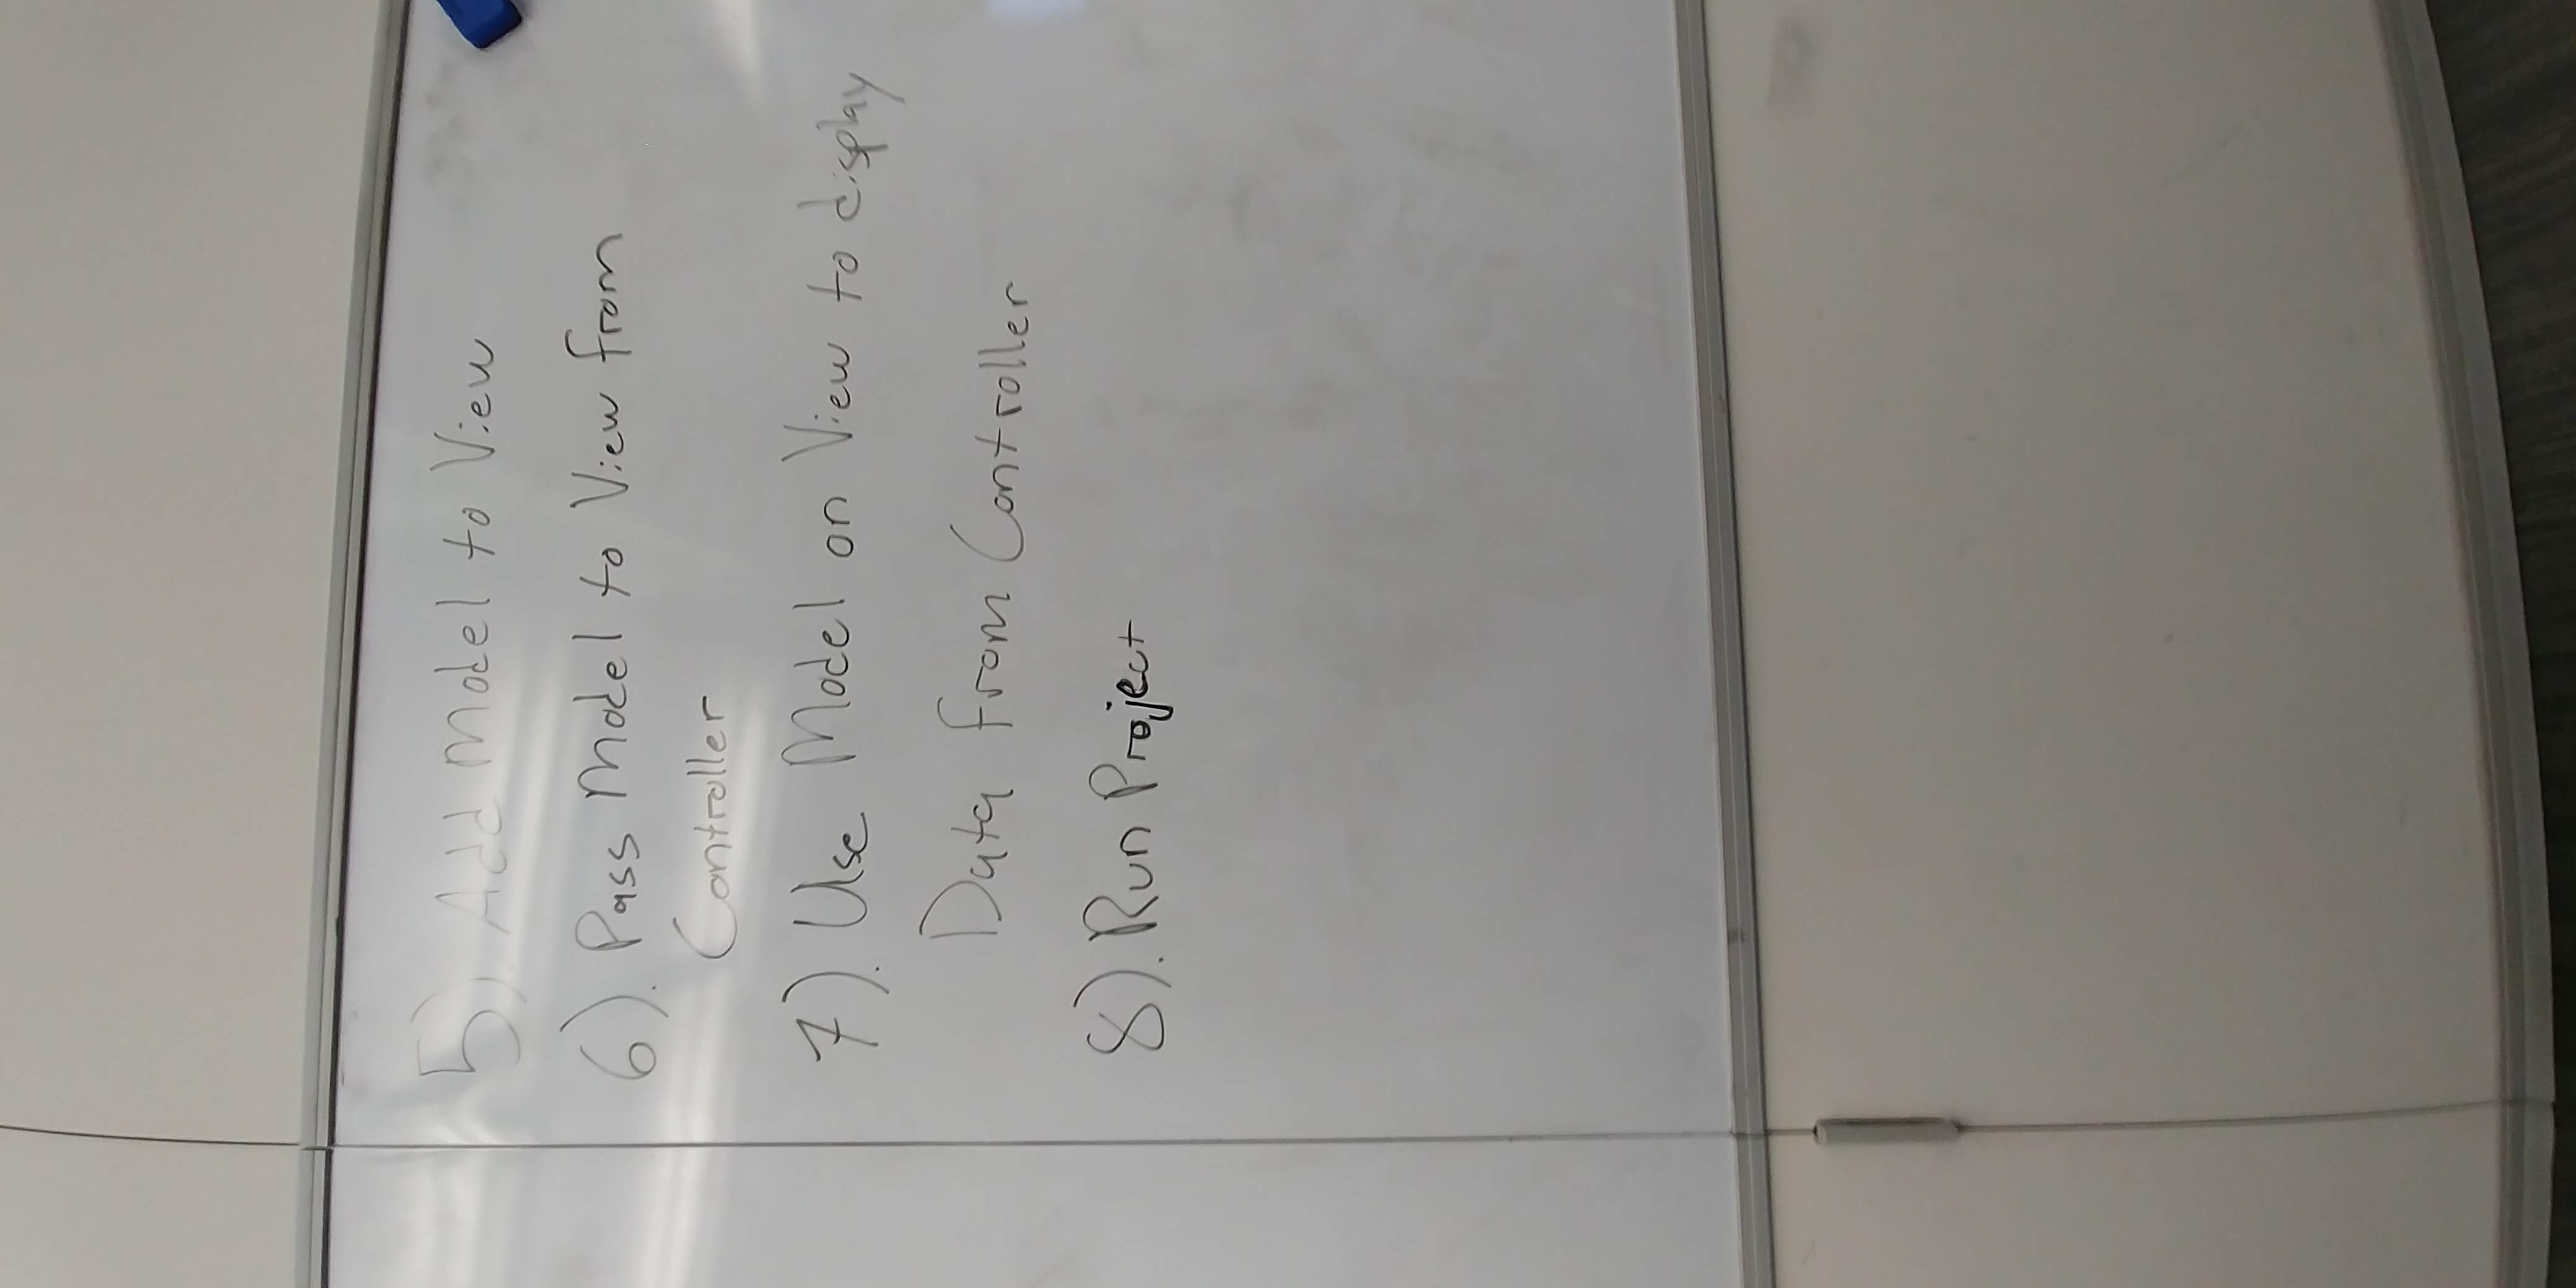 5). Add Model to View
6). Pass Model to View from
Controller
7). Use Model on View to display
Data from Controller
8). Run Project